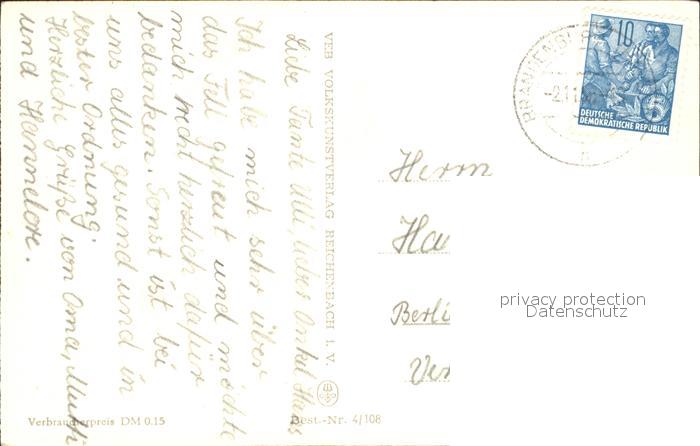 Liebe Tante Ulli, lieber Onkel Hans
Ich habe mich sehr über
das Fell gefreut und möchte
mich recht herzlich dafür
bedanken. Sonst ist bei
uns alles gesund und in
bester Ordnung.
Herzliche Grüße von Oma, Mutti
und Hannelore.
VEB VOLKSKUNSTVERLAG REICHENBACH I. V.
BRANDENBU
-2.11
10
5
DEUTSCHE
DEMOKRATISCHE REPUBLIK
Herrn
Ha
Berli
Ver
privacy protection
Datenschutz
Verbraucherpreis DM 0.15
Best.-Nr. 4/108